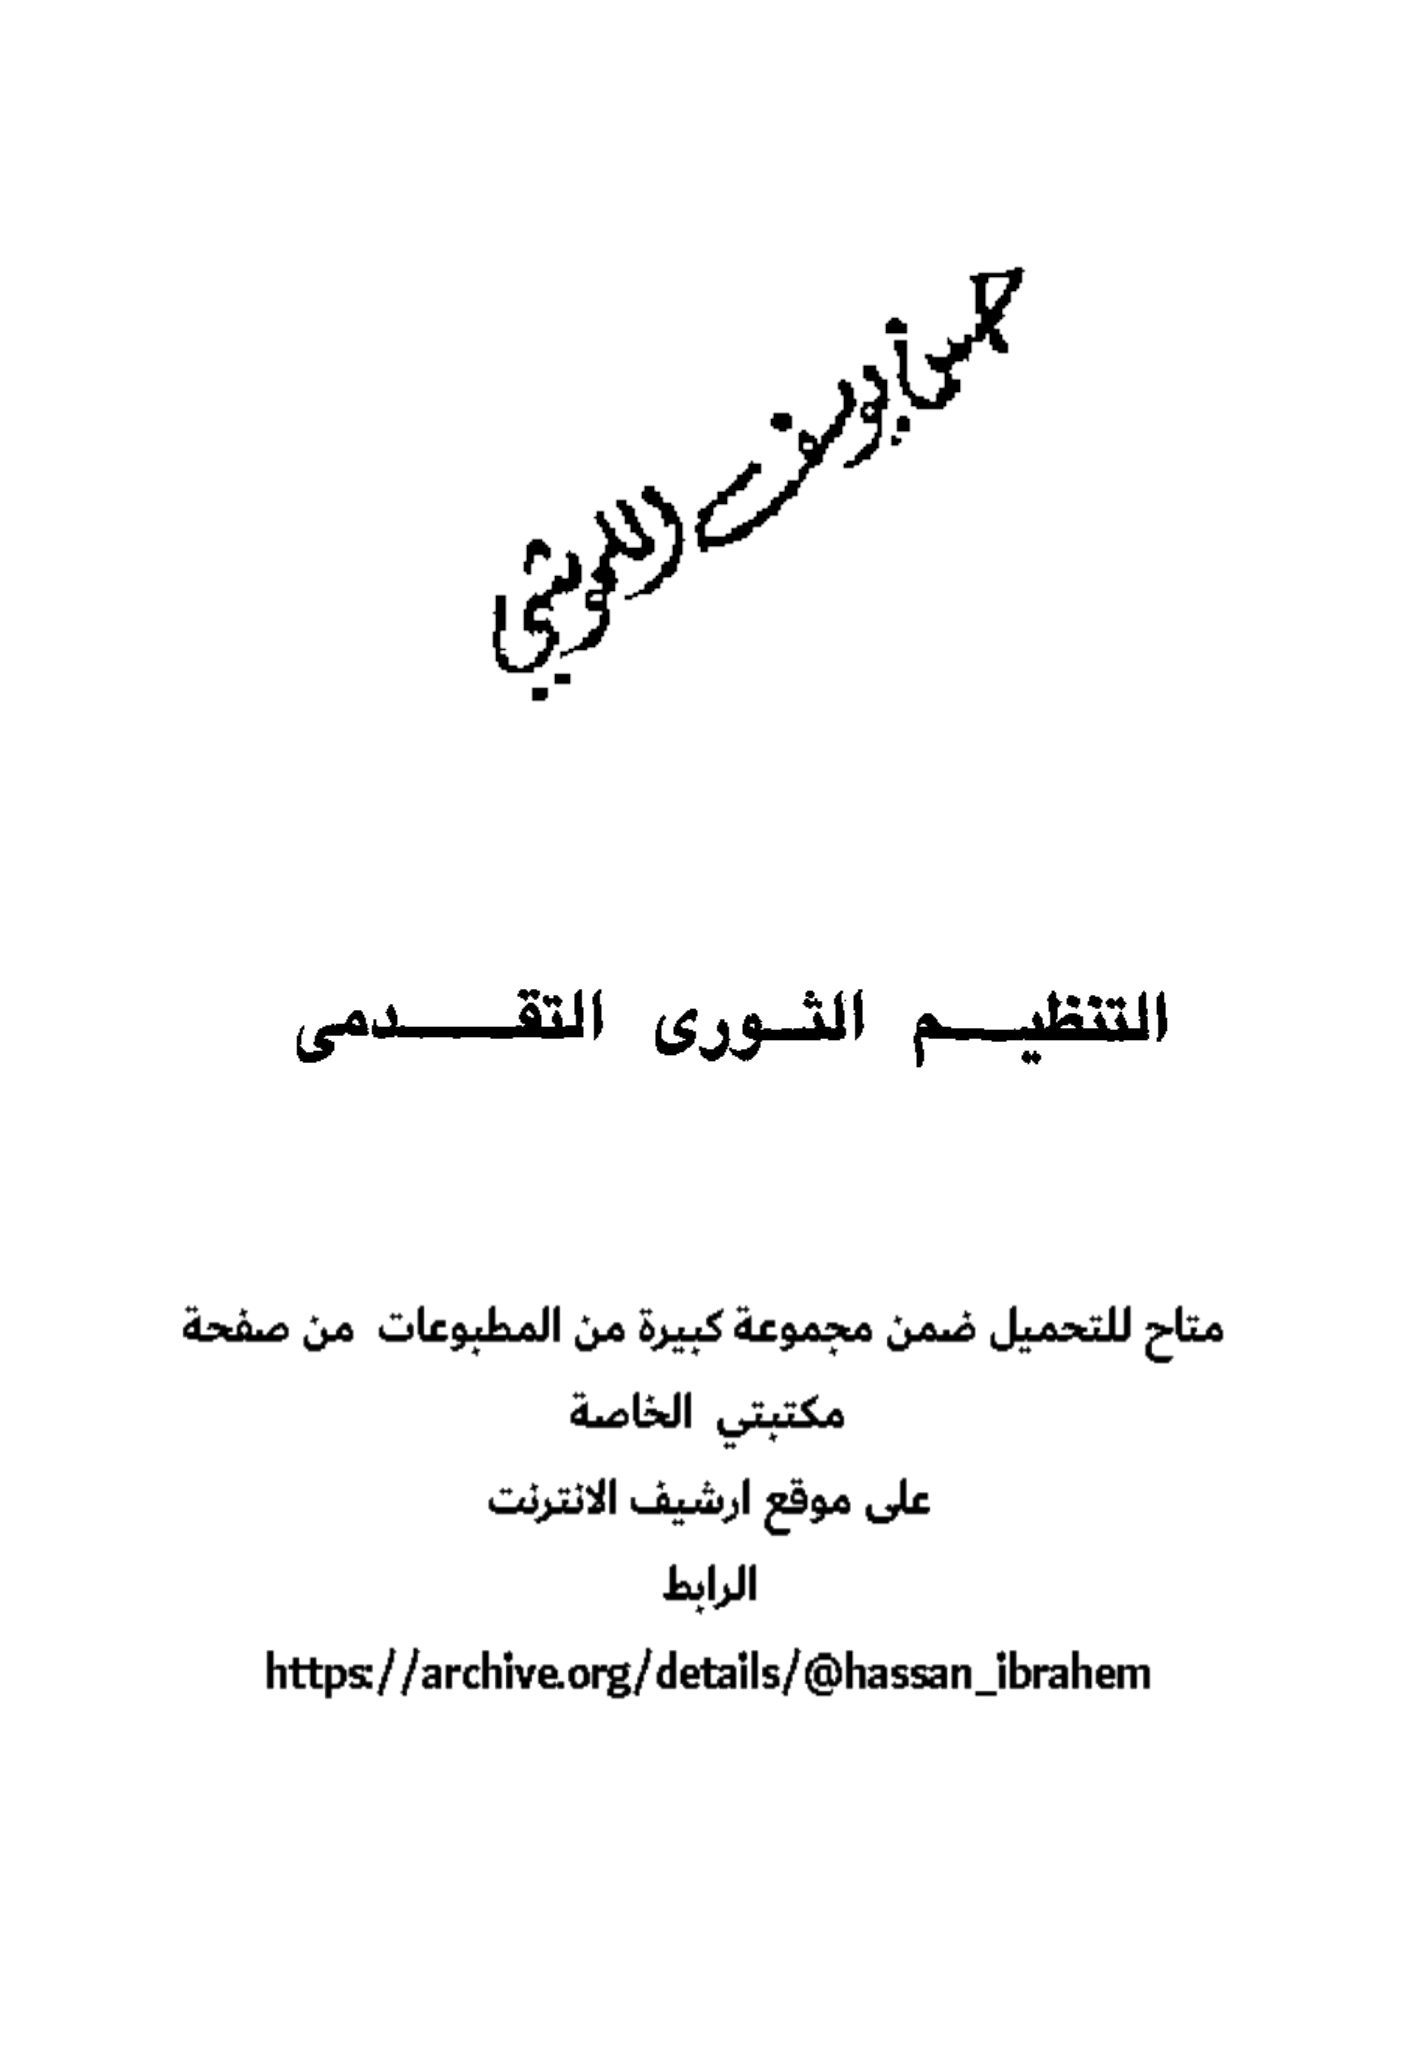 حسن أبو
التنظيم الثورى التقدمى
متاح للتحميل ضمن مجموعة كبيرة من المطبوعات من صفحة
مكتبتي الخاصة
على موقع ارشيف الانترنت
الرابط
https://archive.org/details/@hassan_ibrahem